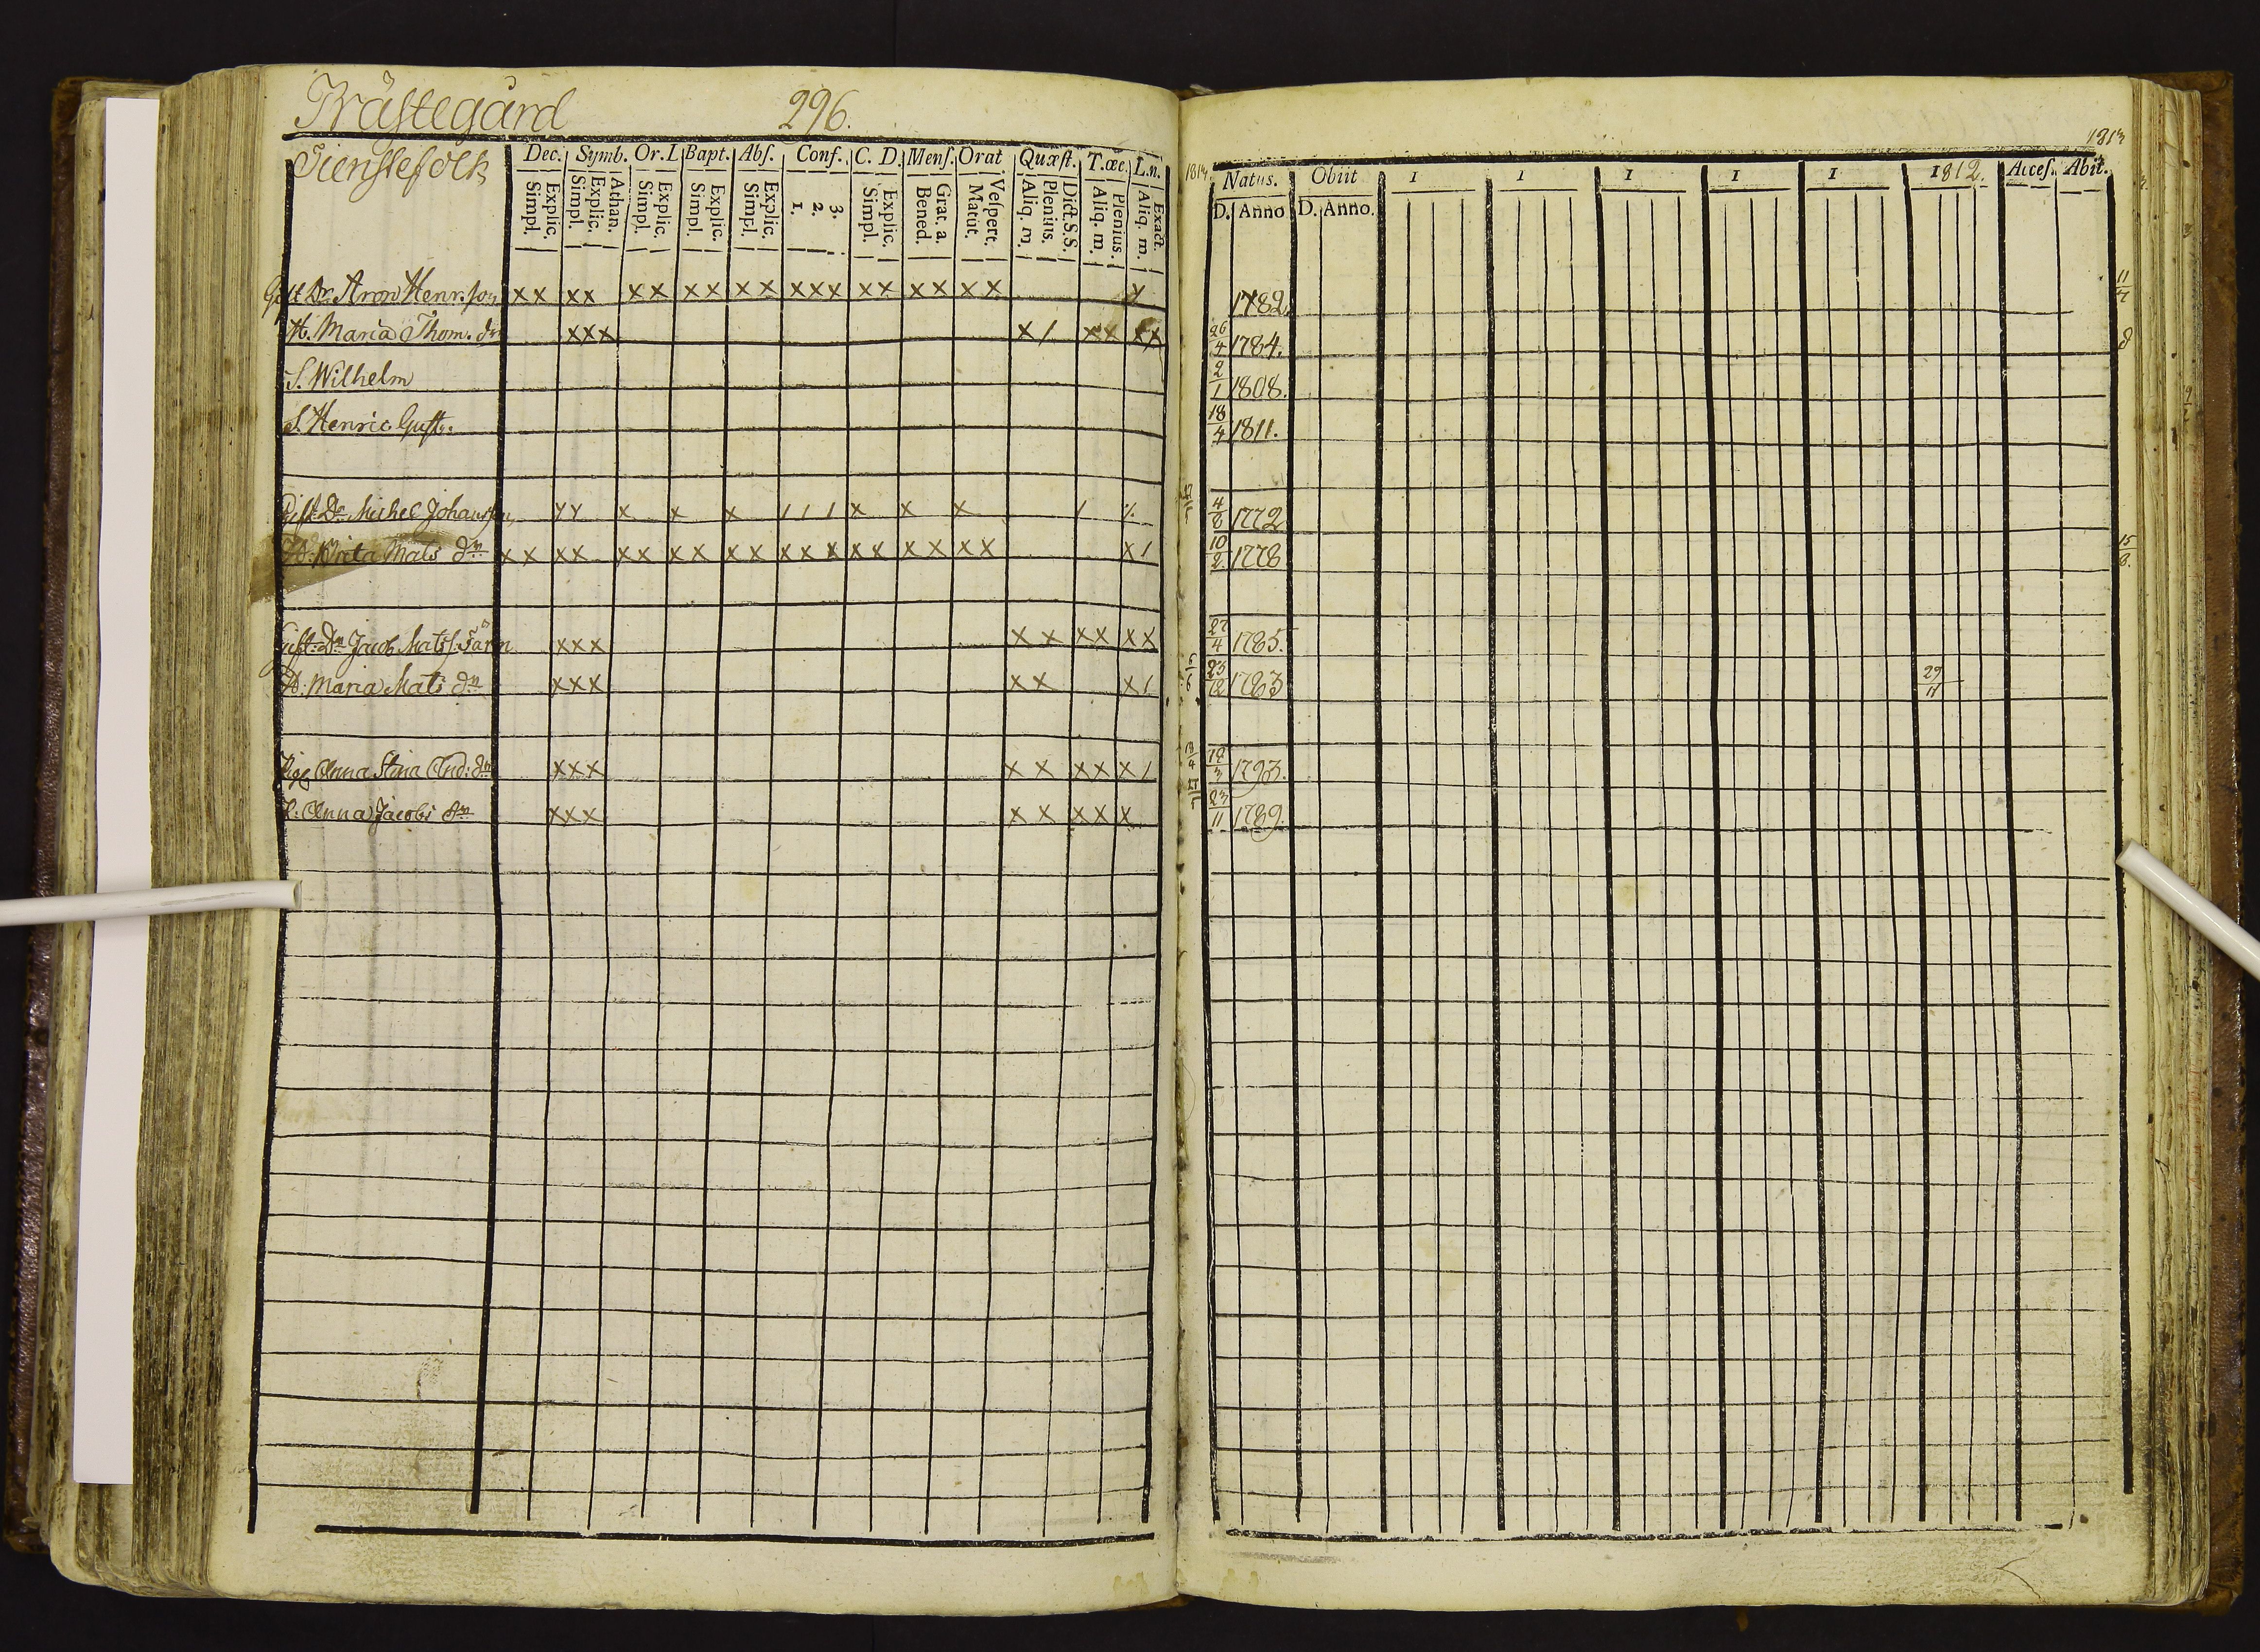 Prästegård 296.
Tienstefolk
Dec. Symb. Or. I. Bapt. Abs. Conf. C. D. Mens. Orat Quæst. T.œc. L.n.
Explic. Simpl. Athan. Explic. Simpl. Explic. Simpl. Explic. Simpl. Explic. Simpl. 3. 2. 1. Explic. Simpl. Grat. a. Bened. Vespert. Matut. Dict. S.S. Plenius. Aliq. m. Plenius. Aliq. m. Exact. Aliq. m.
Gift Dr. Aron Henr.son x x x x x x x x x x x x x x x x x x x x
H. Maria Thom. dr x x x x / x x x x
S. Wilhelm
S. Henric Gust.
Gift Dr. Michel Johansson x x x x x / / / x x x /
H: Brita Mats dr x x x x x x x x x x x x x x x x x x x x /
Gift: Dr Jacob Mats. x x x x x x x x x
H: Maria Mats dr x x x x x x /
Pig Anna Stina And: dr x x x x x x x x /
P: Anna Jacobs dr x x x x x x x x
1813
1814. Natus. Obiit 1 1 1 1 1 1812. Acces. Abit.
D. Anno D. Anno.
1782. 11/4
26/4 1784.
2/1 1808.
18/4 1811.
4/8 1772
10/2 1778 15/8.
27/4 1785.
5/6 23/12 1783 29/11
12/3 1793.
23/11 1789